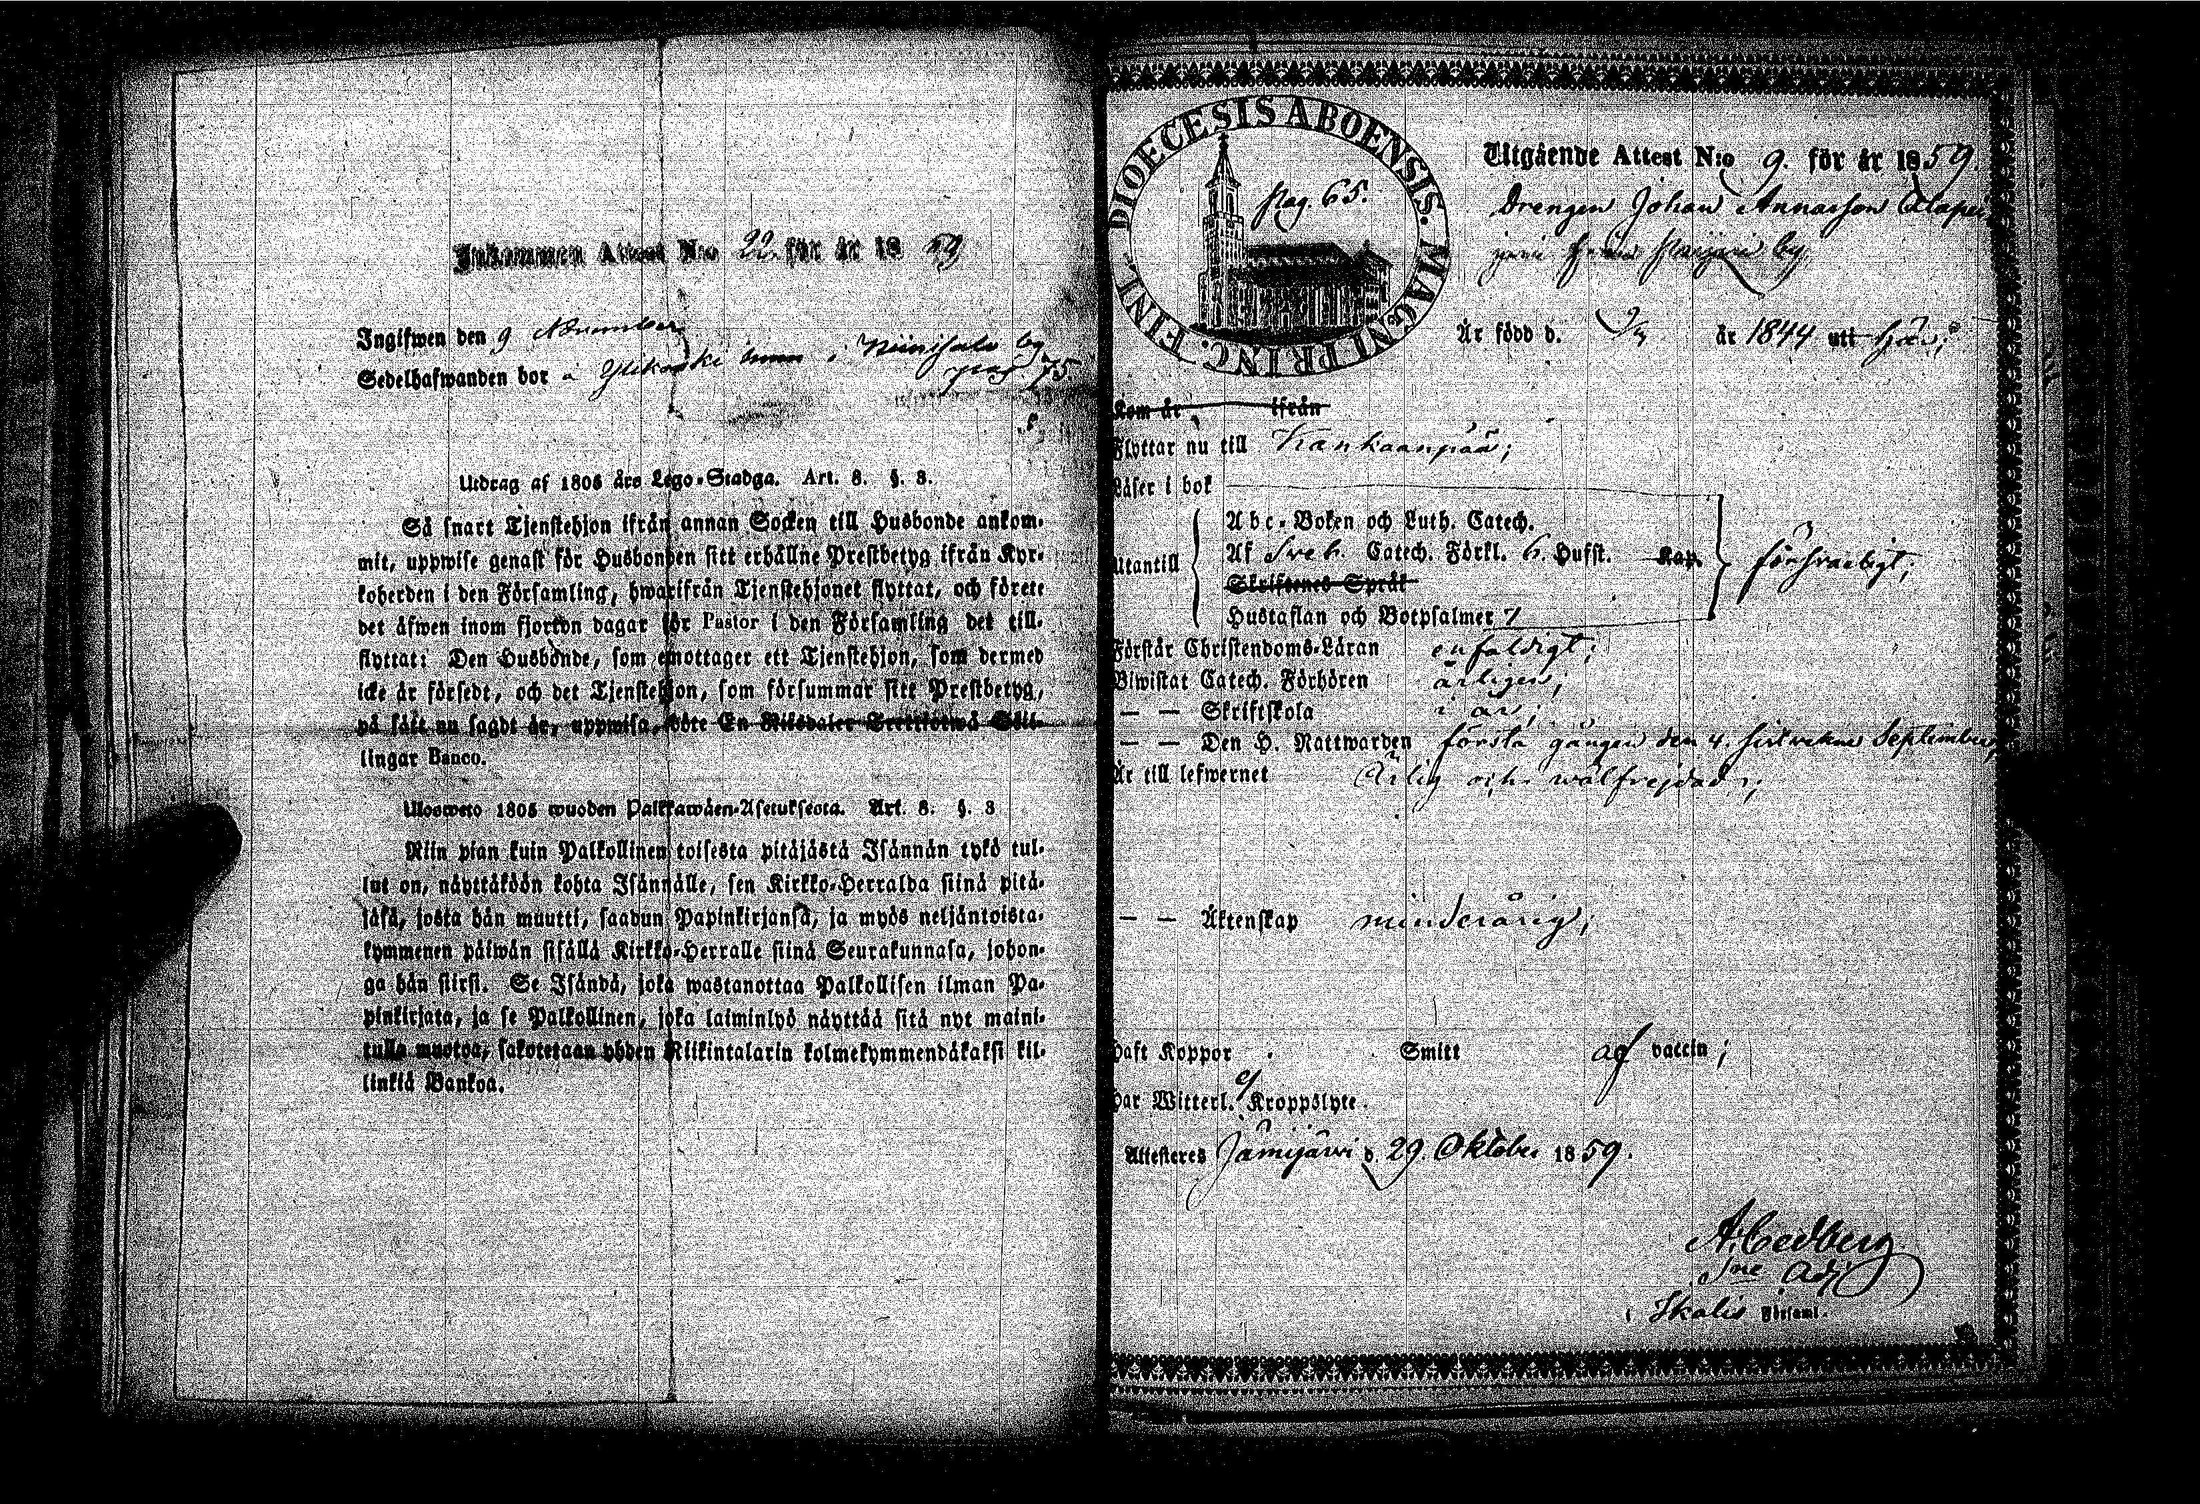 Inkommen Attest N:o 22. för år 1859
Ingifwen den 9 November
Sedelhafwanden bor å i Niinisalo by
pag. 75.
Utdrag af 1805 års Lego-Stadga. Art. 8. §. 3.
Så snart Tjenstehjon ifrån annan Socken till Husbonde ankom-
mit, uppwise genast för Husbonden sitt erhållne Prestbetyg ifrån Kyr-
koherden i den Församling, hwarifrån Tjenstehjonet flyttat, och förete
det äfwen inom fjorton dagar för Pastor i den Församling det till-
flyttat: Den Husbonde, som emottager ett Tjenstehjon, som dermed
icke är försedt, och det Tjenstehjon, som försummar sitt Prestbetyg,
på sätt nu sagdt är, uppwisa, böte En Riksdaler Trettiotwå Skil-
lingar Banco.
Ulosweto 1805 wuoden Palkkawäen-Asetuksesta. Art. 8. §. 3
Niin pian kuin Palkollinen toisesta pitäjästä Isännän tykö tul-
lut on, näyttäköön kohta Isännälle, sen Kirkko-Herralda siinä pitä-
jäsä, josta hän muutti, saadun Papinkirjansa, ja myös neljäntoista-
kymmenen päiwän sisällä Kirkko-Herralle siinä Seurakunnasa, johon-
ga hän siirsi. Se Isändä, joka wastanottaa Palkollisen ilman Pa-
pinkirjata, ja se Palkollinen, joka laiminlyö näyttää sitä nyt maini-
tulla muotoa, sakotetaan yhden Riikintalarin kolmekymmendäkaksi kil-
linkiä Bankoa.
DIOECESIS ABOENSIS. MAGNI PRINC. FINL.
pag. 65.
Utgående Attest N:o 9. för år 1859.
Drengen Johan Annasson
från by
Är född d. år 1844 uti
Kom år ifrån
Flyttar nu till Kankaanpää;
Läser i bok
Utantill
Abc-Boken och Luth. Catech.
Af Sveb. Catech. Förkl. 6. Hufst. Kap.
Skriftenes Språk
Hustaflan och Botpsalmer 7
försvarligt;
Förstår Christendoms-Läran enfaldigt;
Biwistat Catech. Förhören årligen;
— — Skriftskola i år;
— — Den H. Nattwarden första gången den 4. September;
Är till lefwernet Ärlig och wälfrejdad;
— — Äktenskap minderårig;
Haft Koppor. Smitt af vaccin;
Har Witterl. ej Kroppslyte.
Attesteres Jämijärvi d. 29. Oktober 1859.
A. Cedberg
Adj
i Ikalis Församl.